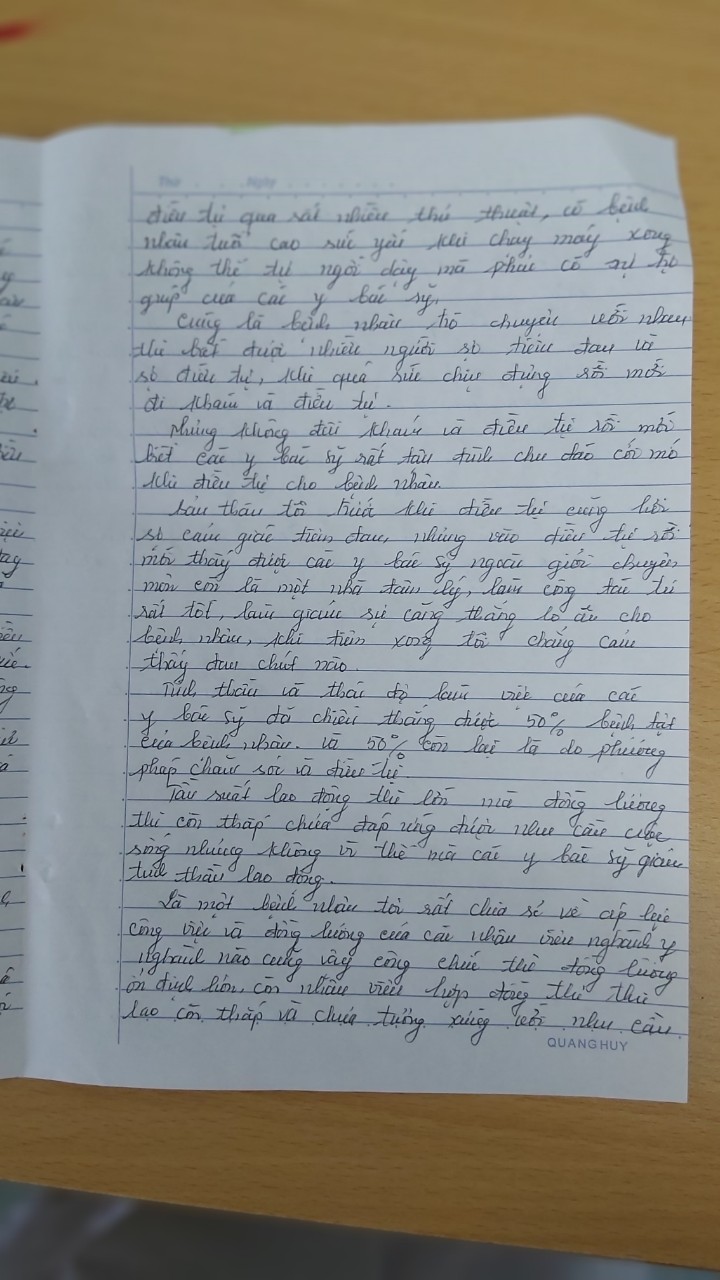 Thứ ........ Ngày ...............
điều tự qua rất nhiều thủ thuật, có bệnh
nhân tuổi cao sức yếu khi chạy máy xong
không thể tự ngồi dậy mà phải có sự hỗ
giúp của các y bác sỹ.
Cũng là bệnh nhân trò chuyện với nhau
thì biết được nhiều người sợ tiêm đau và
sợ điều tự, khi quá sức chịu đựng rồi mới
đi khám và điều tự.
Nhưng không đâu khám và điều tự rồi mới
biết các y bác sỹ rất tận tình chu đáo cởi mở
khi điều tự cho bệnh nhân
Bản thân tôi trước khi điều tự cũng hơi
sợ cảm giác tiêm đau, nhưng vào điều tự rồi
mới thấy được các y bác sỹ ngoài giỏi chuyên
môn còn là một nhà tâm lý, làm công tác tư
rất tốt, làm giảm sự căng thẳng lo âu cho
bệnh nhân, khi tiêm xong tôi chẳng cảm
thấy đau chút nào.
Tinh thần và thái độ làm việc của các
y bác sỹ đã chiến thắng được 50% bệnh tật
của bệnh nhân. và 50% còn lại là do phương
pháp chăm sóc và điều tự.
Tần suất lao động thì lớn mà đồng lương
thì còn thấp chưa đáp ứng được nhu cầu cuộc
sống nhưng không vì thế mà các y bác sỹ giảm
tinh thần lao động.
Là một bệnh nhân tôi rất chia sẻ về áp lực
công việc và đồng lương của các nhân viên nghành y
nghành nào cũng vậy công chức thì đồng lương
ổn định hơn, còn nhân viên hợp đồng thì thù
lao còn thấp và chưa tương xứng với nhu cầu.
QUANGHUY